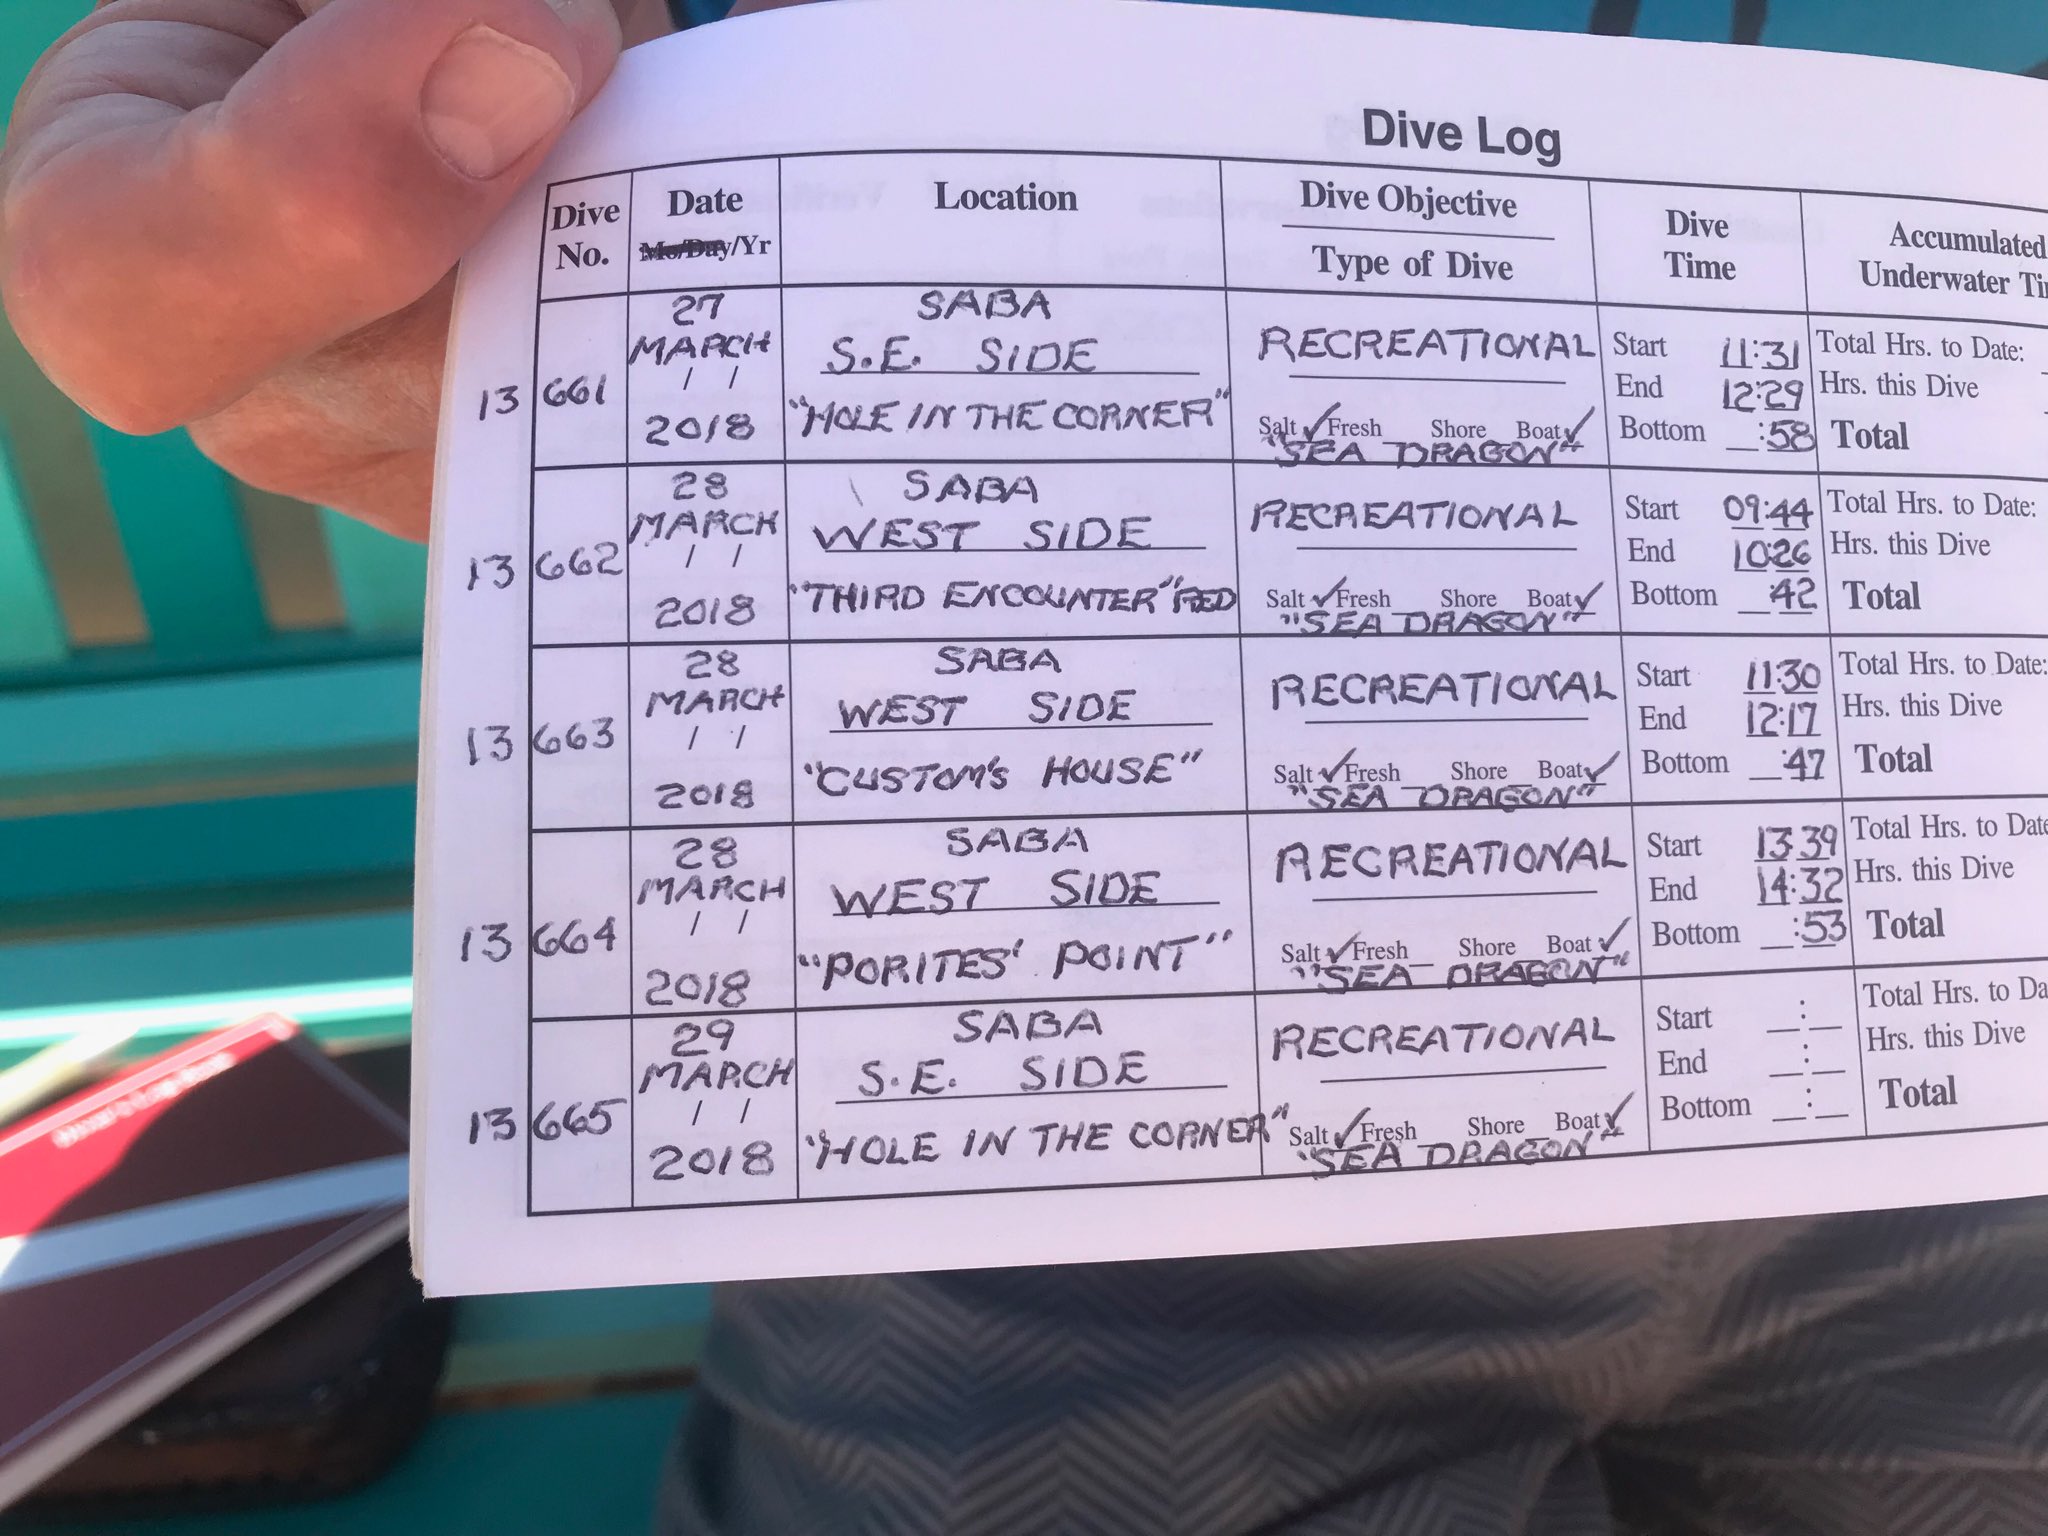 Dive Log
Dive No. Date Mo/Day/Yr Location Dive Objective Type of Dive Dive Time Accumulated Underwater
13 661 27 MARCH / / 2018
SABA
S.E. SIDE
"HOLE IN THE CORNER"
RECREATIONAL
Salt ✓ Fresh Shore Boat ✓
"SEA DRAGON"
Start 11:31
End 12:29
Bottom :58
Total Hrs. to Date:
Hrs. this Dive
Total
13 662 28 MARCH / / 2018
SABA
WEST SIDE
"THIRD ENCOUNTER" RED
RECREATIONAL
Salt ✓ Fresh Shore Boat ✓
"SEA DRAGON"
Start 09:44
End 10:26
Bottom :42
Total Hrs. to Date:
Hrs. this Dive
Total
13 663 28 MARCH / / 2018
SABA
WEST SIDE
"CUSTOM'S HOUSE"
RECREATIONAL
Salt ✓ Fresh Shore Boat ✓
"SEA DRAGON"
Start 11:30
End 12:17
Bottom :47
Total Hrs. to Date:
Hrs. this Dive
Total
13 664 28 MARCH / / 2018
SABA
WEST SIDE
"PORITES' POINT"
RECREATIONAL
Salt ✓ Fresh Shore Boat ✓
"SEA DRAGON"
Start 13:39
End 14:32
Bottom :53
Total Hrs. to Date
Hrs. this Dive
Total
13 665 29 MARCH / / 2018
SABA
S.E. SIDE
"HOLE IN THE CORNER"
RECREATIONAL
Salt ✓ Fresh Shore Boat ✓
"SEA DRAGON"
Start :
End :
Bottom :
Total Hrs. to Da
Hrs. this Dive
Total